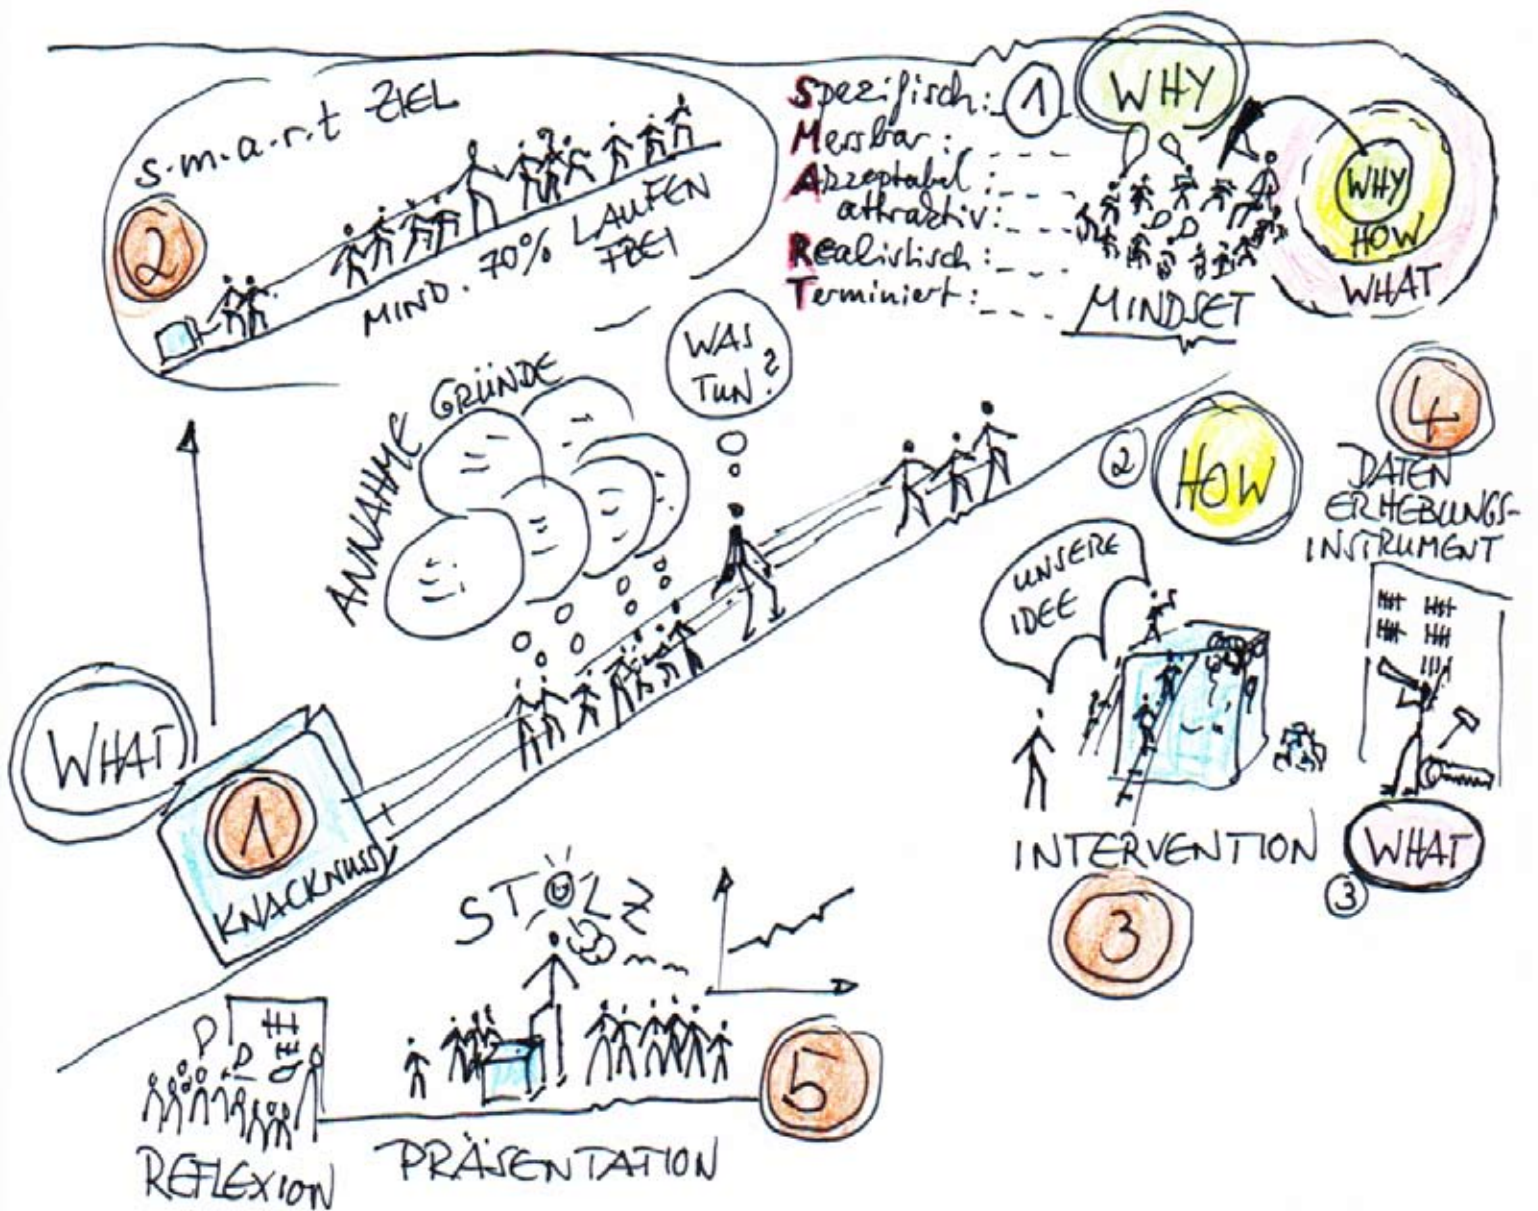 s.m.a.r.t ZIEL
2
MIND. 70% LAUFEN
FREI
Spezifisch:
Messbar:
Akzeptabel:
attraktiv:
Realistisch:
Terminiert:
1
WHY
WHY
HOW
WHAT
MINDSET
ANNAHME GRÜNDE
WAS
TUN?
2
HOW
4
DATEN
ERHEBUNGS-
INSTRUMENT
UNSERE
IDEE
WHAT
1
KNACKNUSS
INTERVENTION
3
WHAT
3
STOLZ
5
REFLEXION
PRÄSENTATION